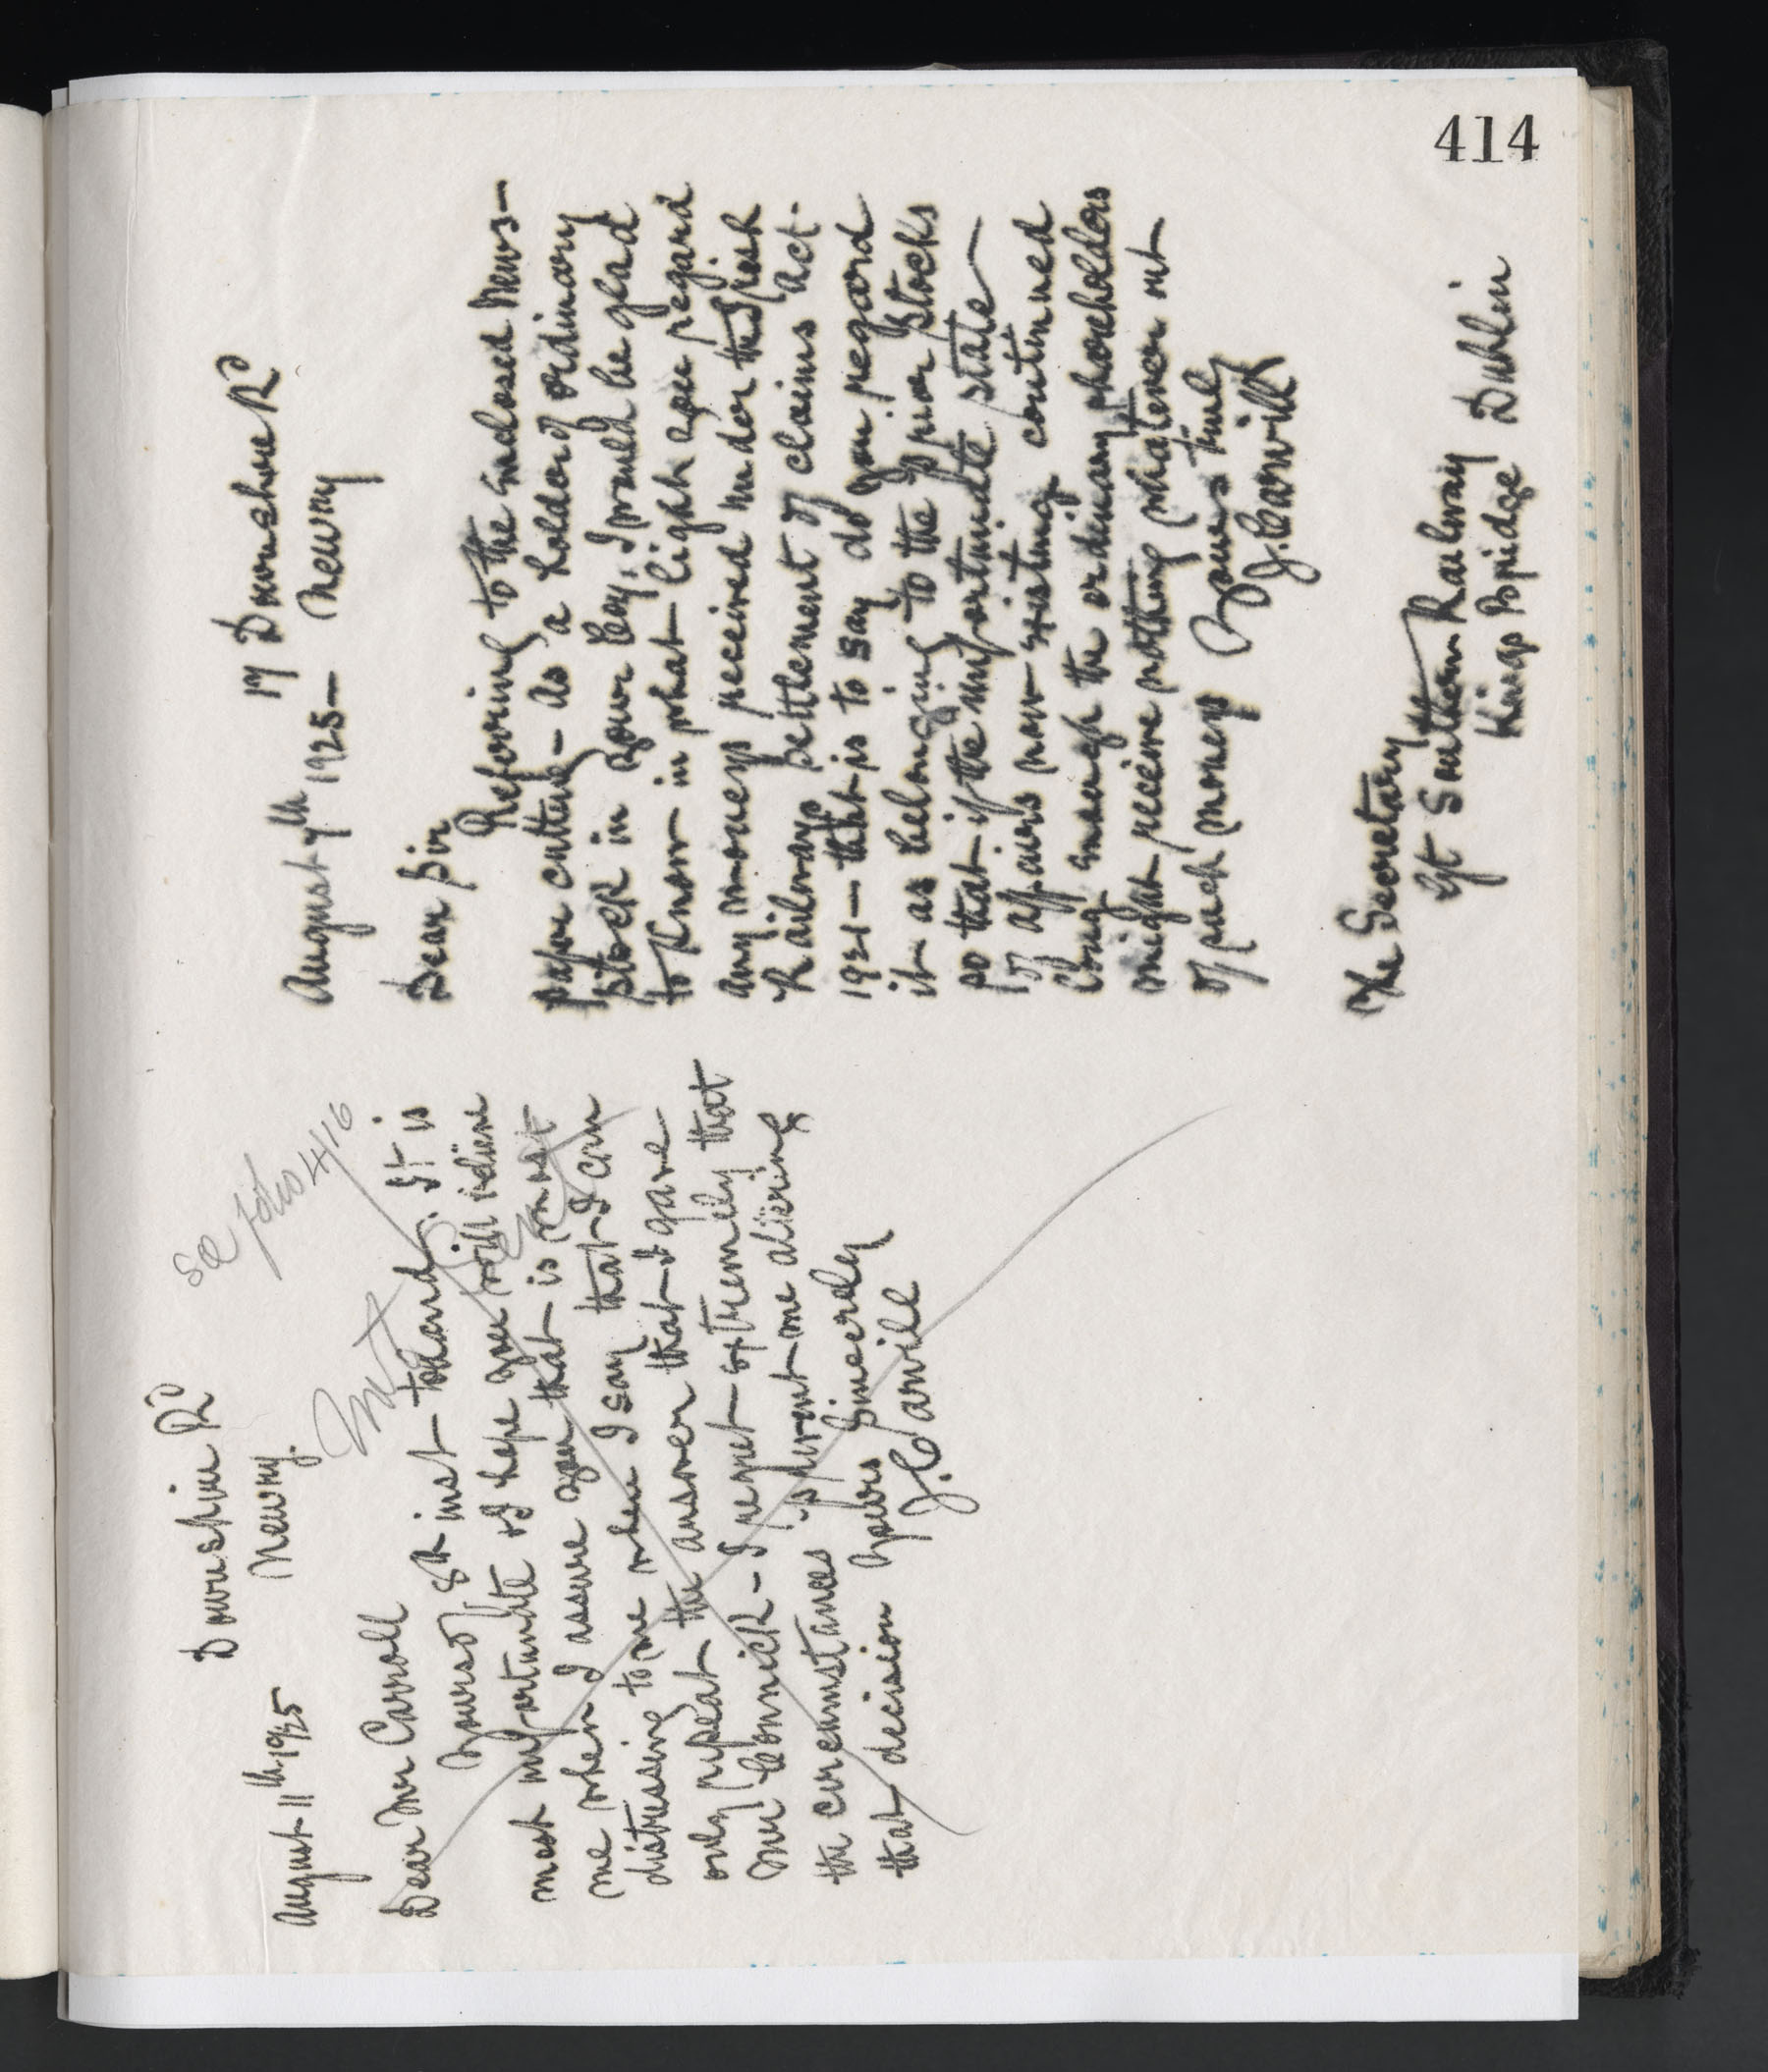 414
17 Downshire Rd
August 7th 1925 — Newry
Dear Sir
Referring to the enclosed News-
paper cutting — As a holder of ordinary
stock in your Coy, I would be glad
to know in what light you regard
any moneys received under the Irish
Railways Settlement of claims Act.
1921 — that is to say do you regard
it as belonging to the prior Stocks
so that if the unfortunate state
of affairs now existing continued
long enough the ordinary shareholders
might receive nothing whatever out
of such moneys Yours truly
J. Carvill
The Secretary
Gt Southern Railway
Kings Bridge Dublin
see folio 416
Downshire Rd
August 11th 1925 Newry.
not
Dear Mr Carroll
Yours of 8th inst to hand. It is
most unfortunate & I hope you will believe
me when I assure you that is most
distressing to me when I say that I can
only repeat the answer that I gave
Mr Connick — I regret extremely that
the circumstances prevent me altering
that decision Yours Sincerely
J. Carvill